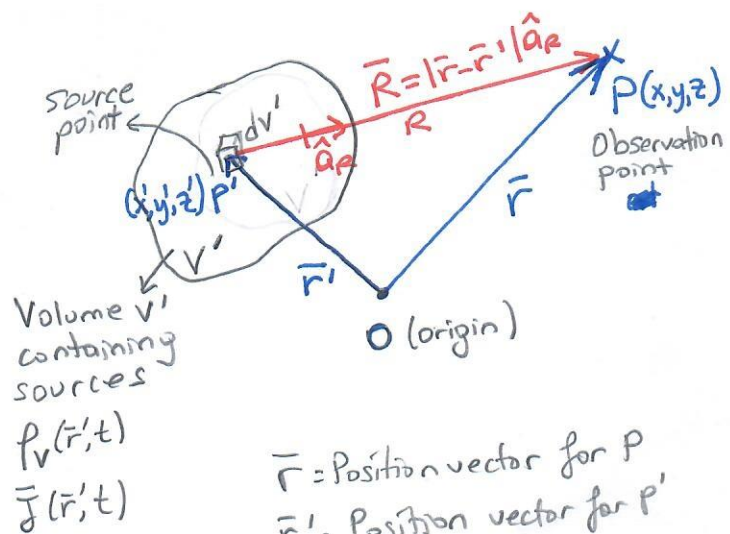 R̅=|r̅-r̅'|â_R
source
point
dv'
R
â_R
P(x,y,z)
Observation
point
(x',y',z') P'
V
r̅
V'
r̅'
Volume V'
containing
sources
O (origin)
ρ_v(r̅',t)
J̅(r̅',t)
r̅ = Position vector for P
r̅' = Position vector for P'